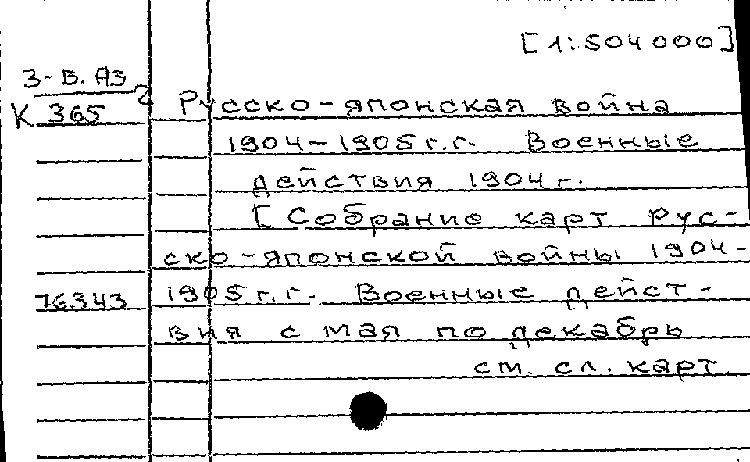 [1:504000]
З-В. АЗ
К 365
Русско-японская война
1904-1905 г.г. Военные
действия 1904 г.
[Собрание карт рус-
ско-японской войны 1904-
1905 г.г. Военные дейст-
76343
вия с мая по декабрь
см. сл. карт